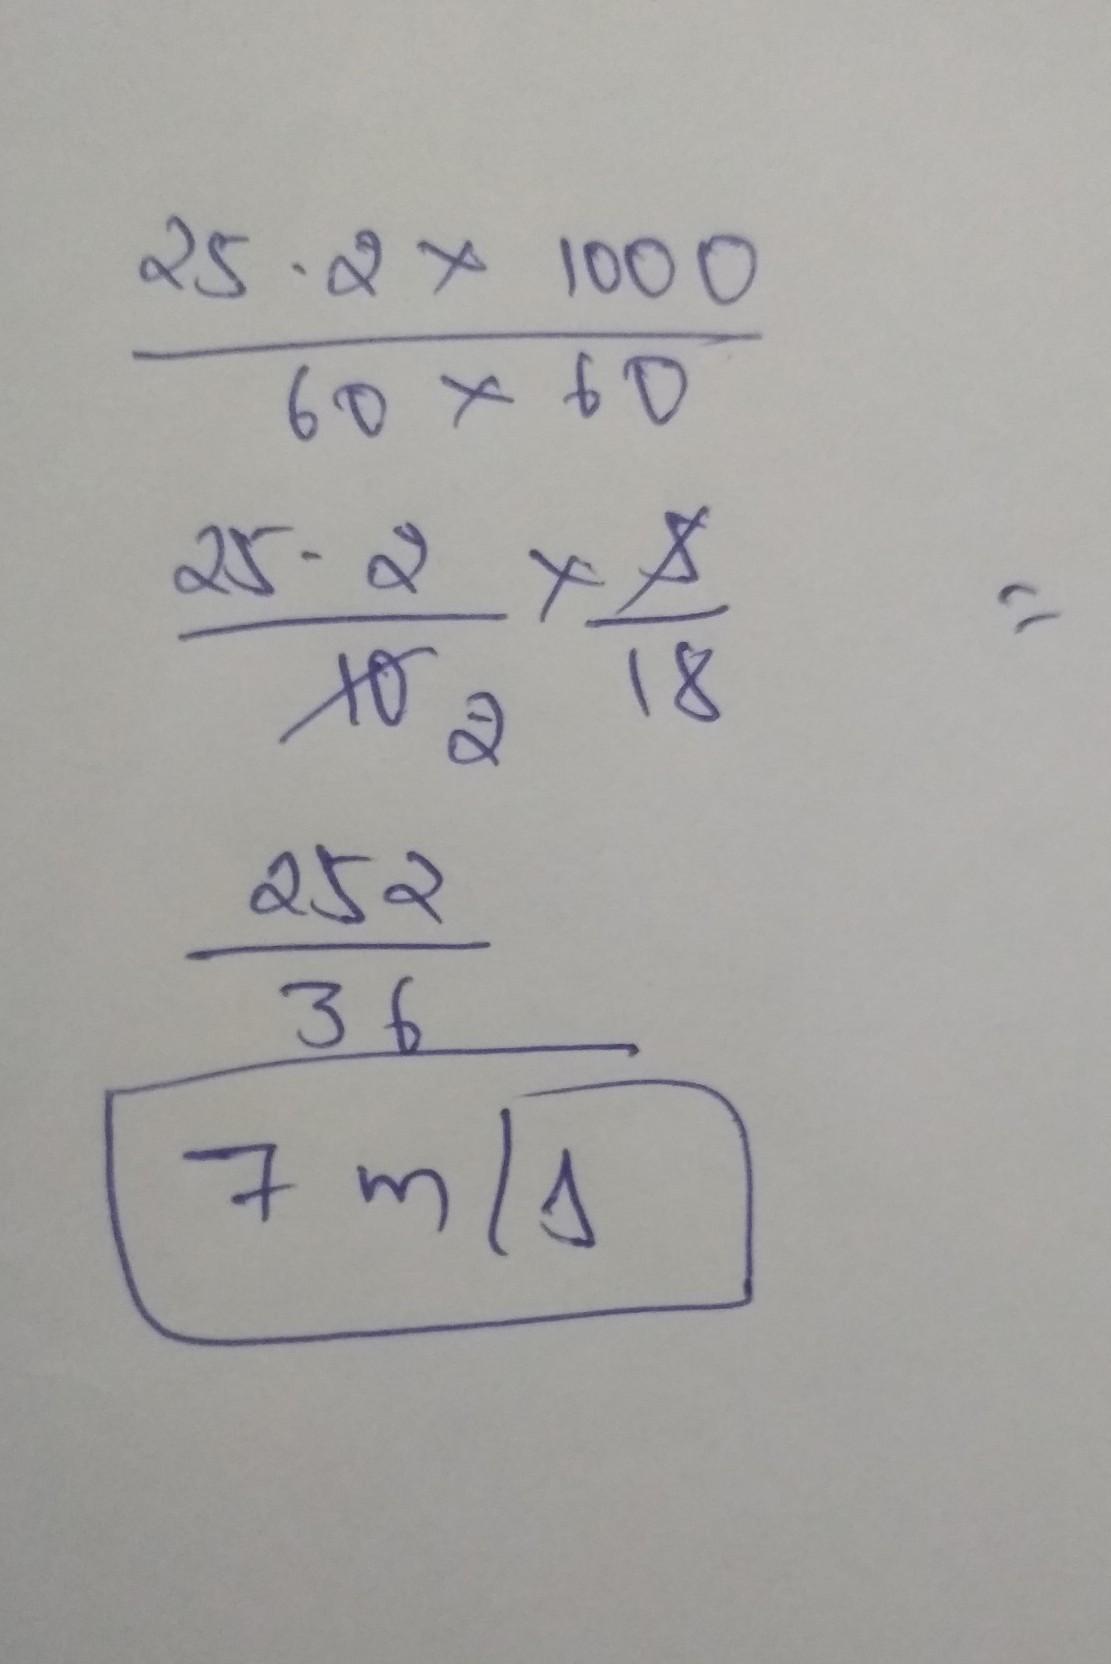 25.2 × 1000
60 × 60
25.2 × 5
10 2 18
=
252
36
7 m/s